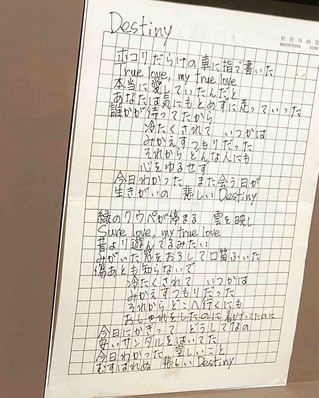 松任谷由実
MATSUTOYA YUMI
Destiny
ホコリだらけの車に指で書いた
True love, my true love
本当に愛していたんだと
あなたは気にもとめずに走っていった
誰かが待ってたから
冷たくされて いつかは
みかえすつもりだった
それからどんな人にも
心をゆるせず
今日わかった また会う日が
生きがいの 悲しい Destiny
緑のクウペが停まる 雲を映し
Sure love, my true love
昔より遊んでるみたい
みがいた窓をおろして口笛ふいた
傷あとも知らないで
冷たくされて いつかは
みかえすつもりだった
それからどこへ行くにも
おしゃれをしたのに 着かざってたのに
今日にかぎって どうしてなの
安いサンダルをはいてた
今日わかった 空しいこと
むすばれぬ 悲しい Destiny